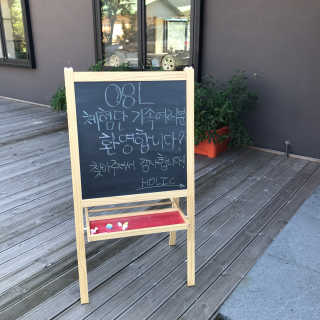 08L
체험단 가족여러분
환영합니다?
찾아주셔서 감사합니다
HOLIC